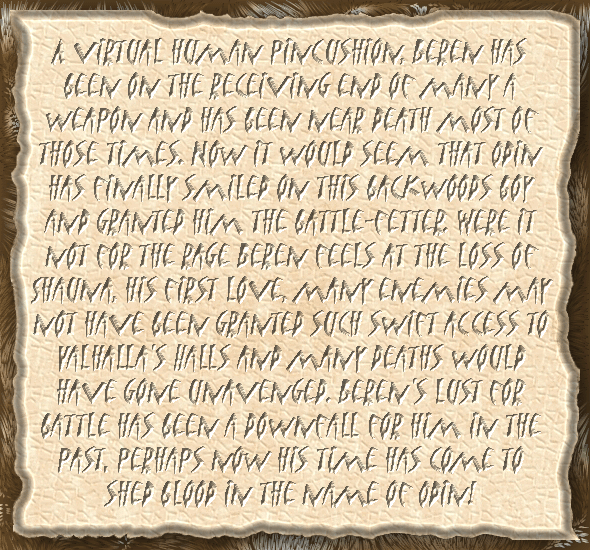 A VIRTUAL HUMAN PINCUSHION, BEREN HAS
BEEN ON THE RECEIVING END OF MANY A
WEAPON AND HAS BEEN NEAR DEATH MOST OF
THOSE TIMES. NOW IT WOULD SEEM THAT ODIN
HAS FINALLY SMILED ON THIS BACKWOODS BOY
AND GRANTED HIM THE BATTLE-FETTER. WERE IT
NOT FOR THE RAGE BEREN FEELS AT THE LOSS OF
SHAUNA, HIS FIRST LOVE, MANY ENEMIES MAY
NOT HAVE BEEN GRANTED SUCH SWIFT ACCESS TO
VALHALLA'S HALLS AND MANY DEATHS WOULD
HAVE GONE UNAVENGED. BEREN'S LUST FOR
BATTLE HAS BEEN A DOWNFALL FOR HIM IN THE
PAST, PERHAPS NOW HIS TIME HAS COME TO
SHED BLOOD IN THE NAME OF ODIN!